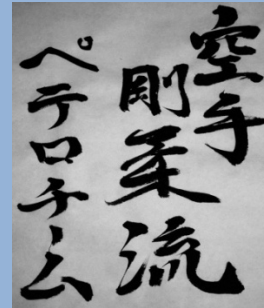 空手
剛柔流
ペテロチーム